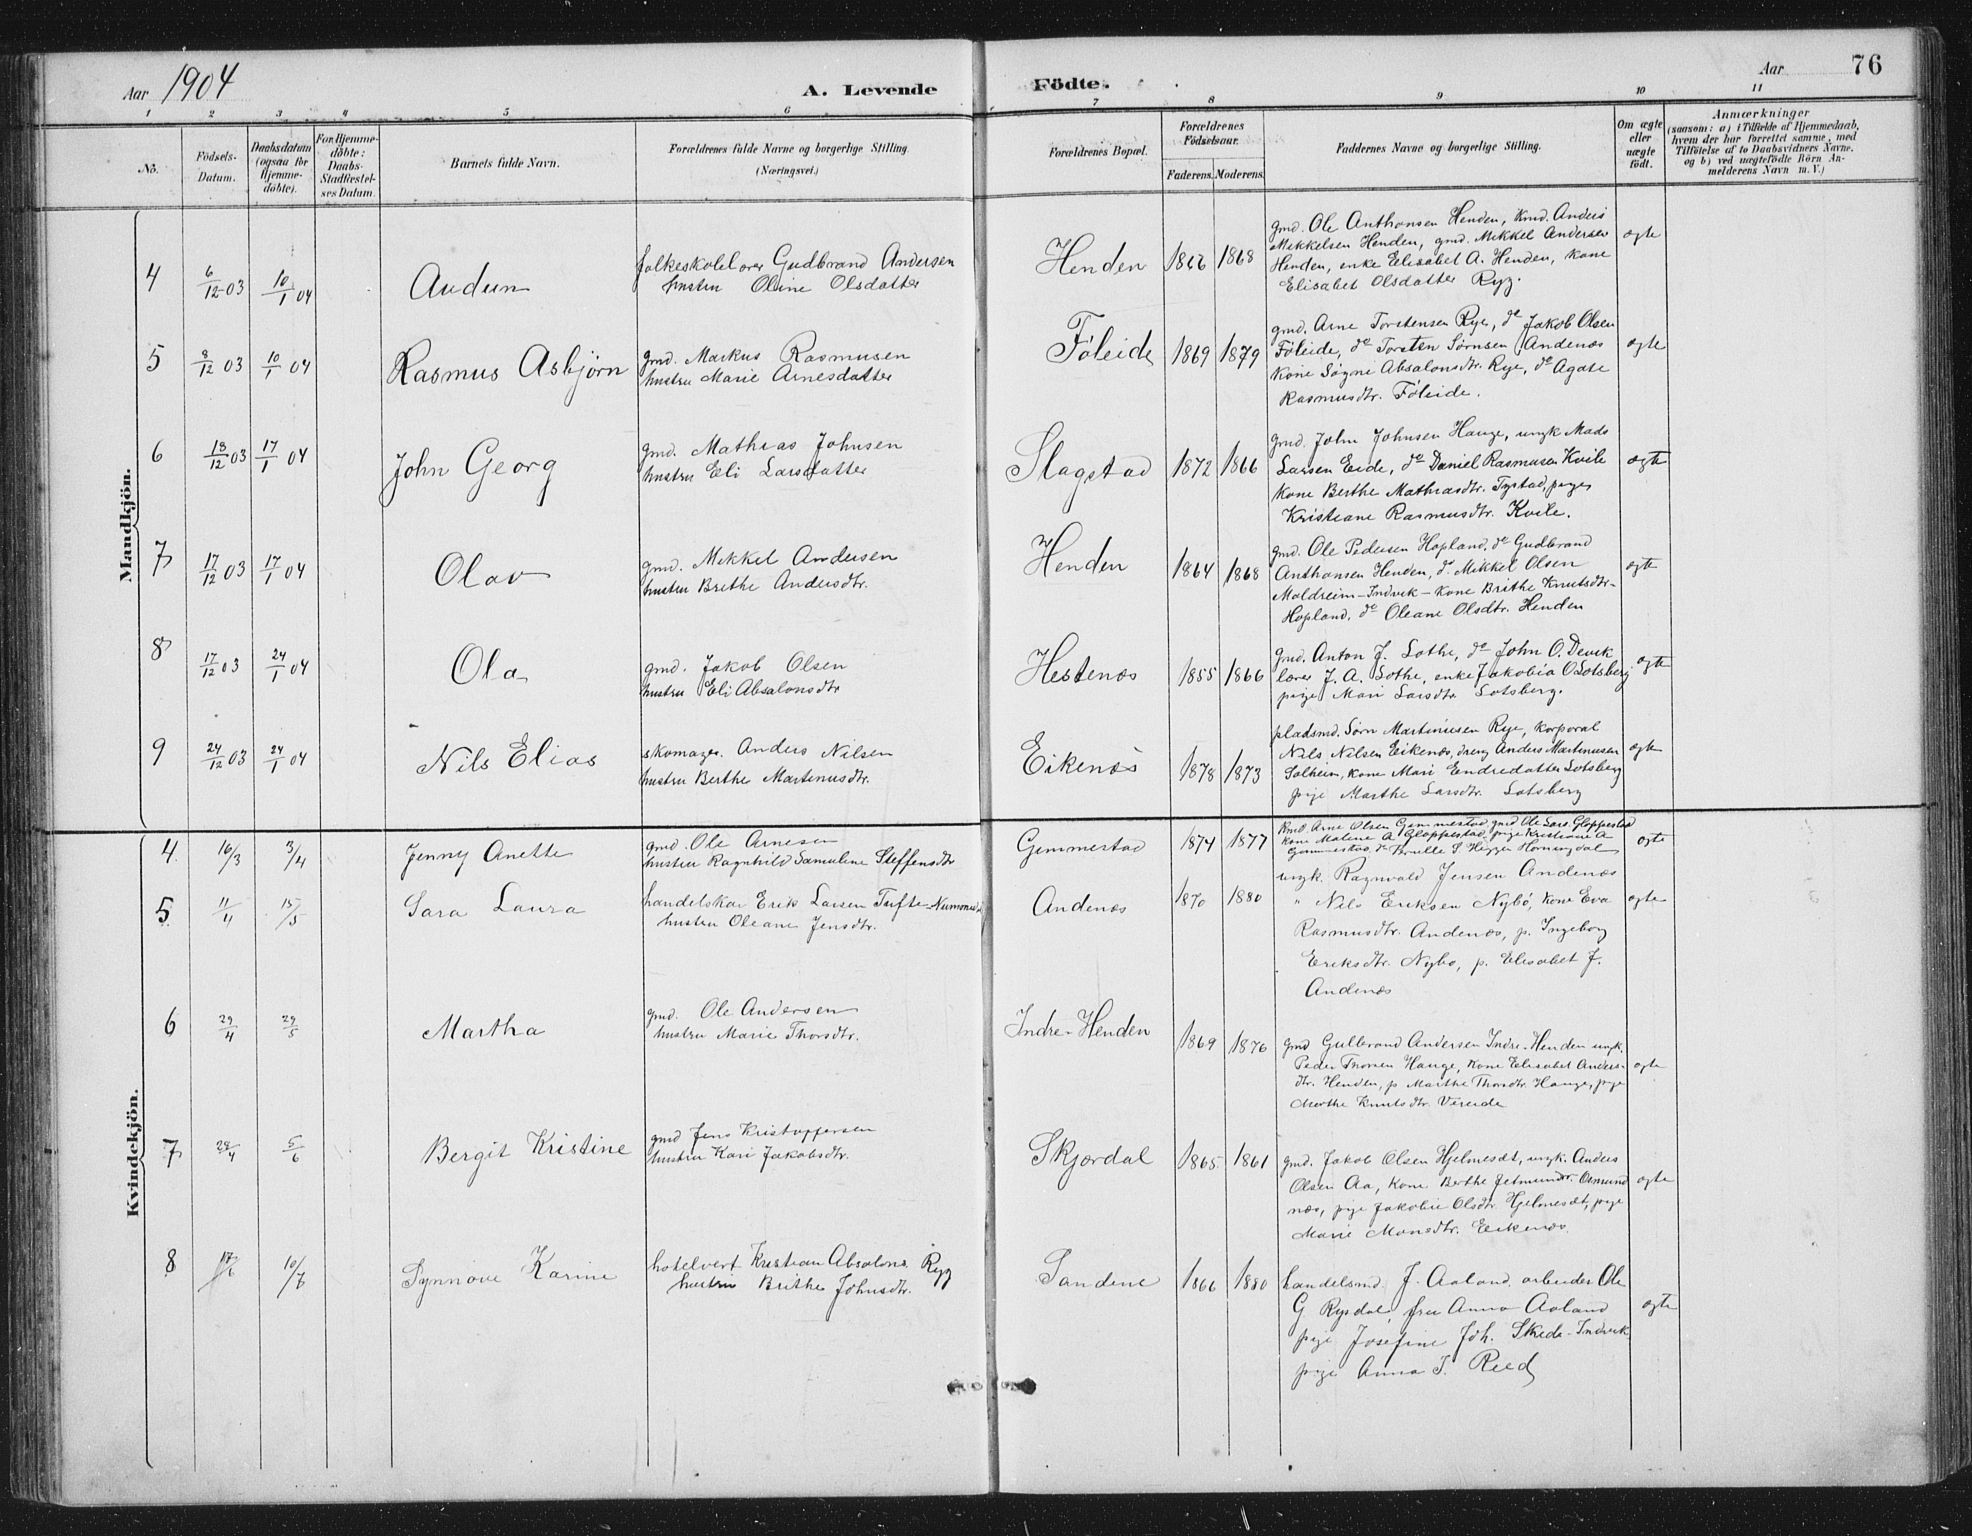 Aar 1904
A. Levende
Födte.
Aar
76
1 2 3 4 5 6 7 8 9 10 11
No.
Födsels-
Datum.
Daabsdatum
(ogsaa for
Hjemme-
döbte).
For Hjemme-
döbte:
Daabs-
Stadfæstel-
ses Datum.
Barnets fulde Navn.
Forældrenes fulde Navne og borgerlige Stilling
(Næringsvei.)
Forældrenes Bopæl.
Forældrenes
Födselsaar.
Faderens. Moderens.
Faddernes Navne og borgerlige Stilling.
Om ægte
eller
uægte
födt.
Anmærkninger
(saasom: a) i Tilfælde af Hjemmedaab,
hvem der har forrettet samme, med
Tilföielse af to Daabsvidners Navne.
og b) ved uægtefödte Börn An-
melderens Navn m. V.)
Mandkjön.
4 6/12 03 10/1 04 Audun
folkeskolelærer Gudbrand Andersen
hustru Oline Olsdatter
Henden 1866 1868
gmd. Ole Anthonsen Henden, kmd. Anders
Mikkelsen Henden, gmd. Mikkel Andersen
Henden, enke Elisabet A. Henden, kone
Elisabet Olsdatter Ryg.
ægte
5 8/12 03 10/1 04 Rasmus Asbjørn
gmd. Markus Rasmusen
hustru Marie Arnesdatter
Føleide 1869 1879
gmd. Arne Torstensen Rye, do Jakob Olsen
Føleide, do Torsten Sørnsen Andenæs
kone Søgni Absalonsdtr. Rye, do Agate
Rasmusdtr. Føleide.
ægte
6 18/12 03 17/1 04 John Georg
gmd. Mathias Johnsen
hustru Eli Larsdatter
Slagstad 1872 1866
gmd. John Johnsen Hauge, ungk Mads
Larsen Eide, do Daniel Rasmusen Kvile
kone Berthe Mathiasdtr. Tystad, pige
Kristiane Rasmusdtr. Kvile.
ægte
7 17/12 03 17/1 04 Olav
gmd. Mikkel Andersen
hustru Brethe Andersdtr.
Henden 1864 1868
gmd. Ole Pedersen Hopland, do Gudbrand
Anthonsen Henden, do Mikkel Olsen
Moldreim-Indvik- kone Brithe Knutsdtr-
Hopland, do Oleane Olsdtr. Henden
ægte
8 17/12 03 24/1 04 Ola
gmd. Jakob Olsen
hustru Eli Absalonsdtr
Hestenæs 1855 1866
gmd. Anton J. Lothe, do John O. Devik
lærer J. A. Lothe, enke Jakobia O Lotsberg
pige Mari Larsdtr Lotsberg.
ægte
9 24/12 03 24/1 04 Nils Elias
skomager. Anders Nilsen
hustru Berthe Martinusdtr.
Eikenæs 1878 1873
pladsmd. Sørn Martinusen Rye, korporal
Nils Nilsen Eikenæs, dreng Anders Martinusen
Solheim, kone Mari Endredatter Lotsberg
pige Marthe Larsdtr. Lotsberg
ægte
Kvindekjön.
4. 16/3 3/4 Jenny Anette
gmd. Ole Arnesen
hustru Ragnhild Samuline Steffensdtr
Gimmestad 1874 1877
kmd. Arne Olsen Gimmestad, gmd Ole Lars. Gloppestad
kone Malene A Gloppestad, pige Kristiane A
Gimmestad, do Brulle S Hornindal
ægte
5 11/4 15/5 Sara Laura
handelskar Erik Larsen Tufte-
hustru Oleane Jensdtr.
Andenæs 1870 1880
ungk. Ragnvald Jensen Andenæs
" Nils Eriksen Nybø, kone Eva
Rasmusdtr. Andenæs, p. Ingeborg
Eriksdtr. Nybø, p. Elisabet J.
Andenæs
ægte
6 29/4 29/5 Martha
gmd. Ole Andersen
hustru Marie Thorsdtr.
Indre-Henden 1869 1876
gmd Gulbrand Andersen Indre-Henden ungk.
Peder Thorsen Hauge, kone Elisabet Anders-
dtr. Henden, p Marthe Thorsdtr. Hauge, pige
Marthe Knutsdtr. Vereide
ægte
7 28/4 5/6 Bergit Kristine
gmd Jens Kristoffersen
hustru Kari Jakobsdtr.
Skjærdal 1865 1861
gmd. Jakob Olsen Hjelmesæt, ungk. Anders
Olsen Aa, kone Berthe Jetmundr. Osmund
næs, pige Jakobie Olsdtr. Hjelmesæt, pige
Marie Monsdtr. Eikenæs.
ægte
8 17/6 10/7 Synnøve Karine
hotelvert Kristian Absalons. Ryg
hustru Brithe Johnsdtr.
Sandene 1866 1880
handelsmd. J. Aaland, arbeider Ole
G. Rysdal, fru Anna Aaland
pige Josefine Joh. Skede-Indvik
pige Anna I. Reed
ægte